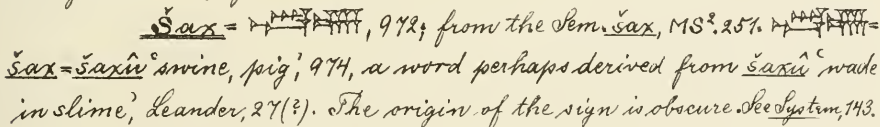 Šax = 𒋚, 972; from the Sem. šax, MS². 251. =
šax = šaxû ‘swine, pig’, 974, a word perhaps derived from šaxû ‘wade
in slime’, Leander, 27(?). The origin of the sign is obscure. See System, 143.